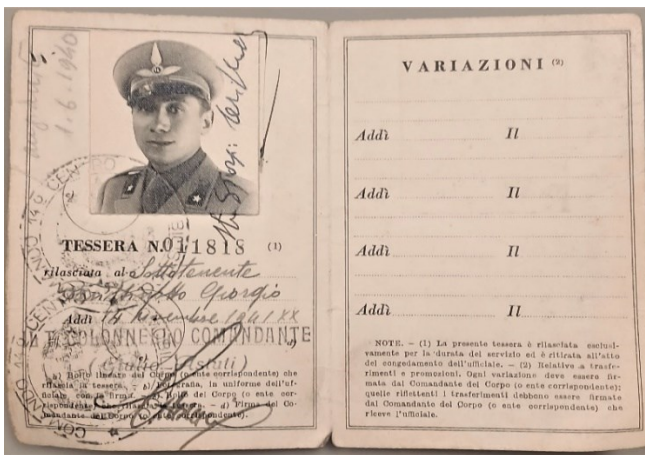 1.6.1940
TESSERA N. 011818 (1)
rilasciata al Sottotenente
Giorgio
Addì 14 Novembre 1941 XX
IL COLONNELLO COMANDANTE
a) Bollo lineare del Corpo (o ente corrispondente) che
rilascia la tessera. - b) Fotografia, in uniforme dell'uf-
ficiale, con la firma. - c) Bollo del Corpo (o ente cor-
rispondente) che rilascia la tessera. - d) Firma del Co-
mandante del Corpo (o ente corrispondente).
VARIAZIONI (2)
Addì Il
Addì Il
Addì Il
Addì Il
NOTE. - (1) La presente tessera è rilasciata esclusi-
vamente per la durata del servizio ed è ritirata all'atto
del congedamento dell'ufficiale. - (2) Relative a trasfe-
rimenti e promozioni. Ogni variazione deve essere fir-
mata dal Comandante del Corpo (o ente corrispondente);
quelle riflettenti i trasferimenti debbono essere firmate
dal Comandante del Corpo (o ente corrispondente) che
riceve l'ufficiale.